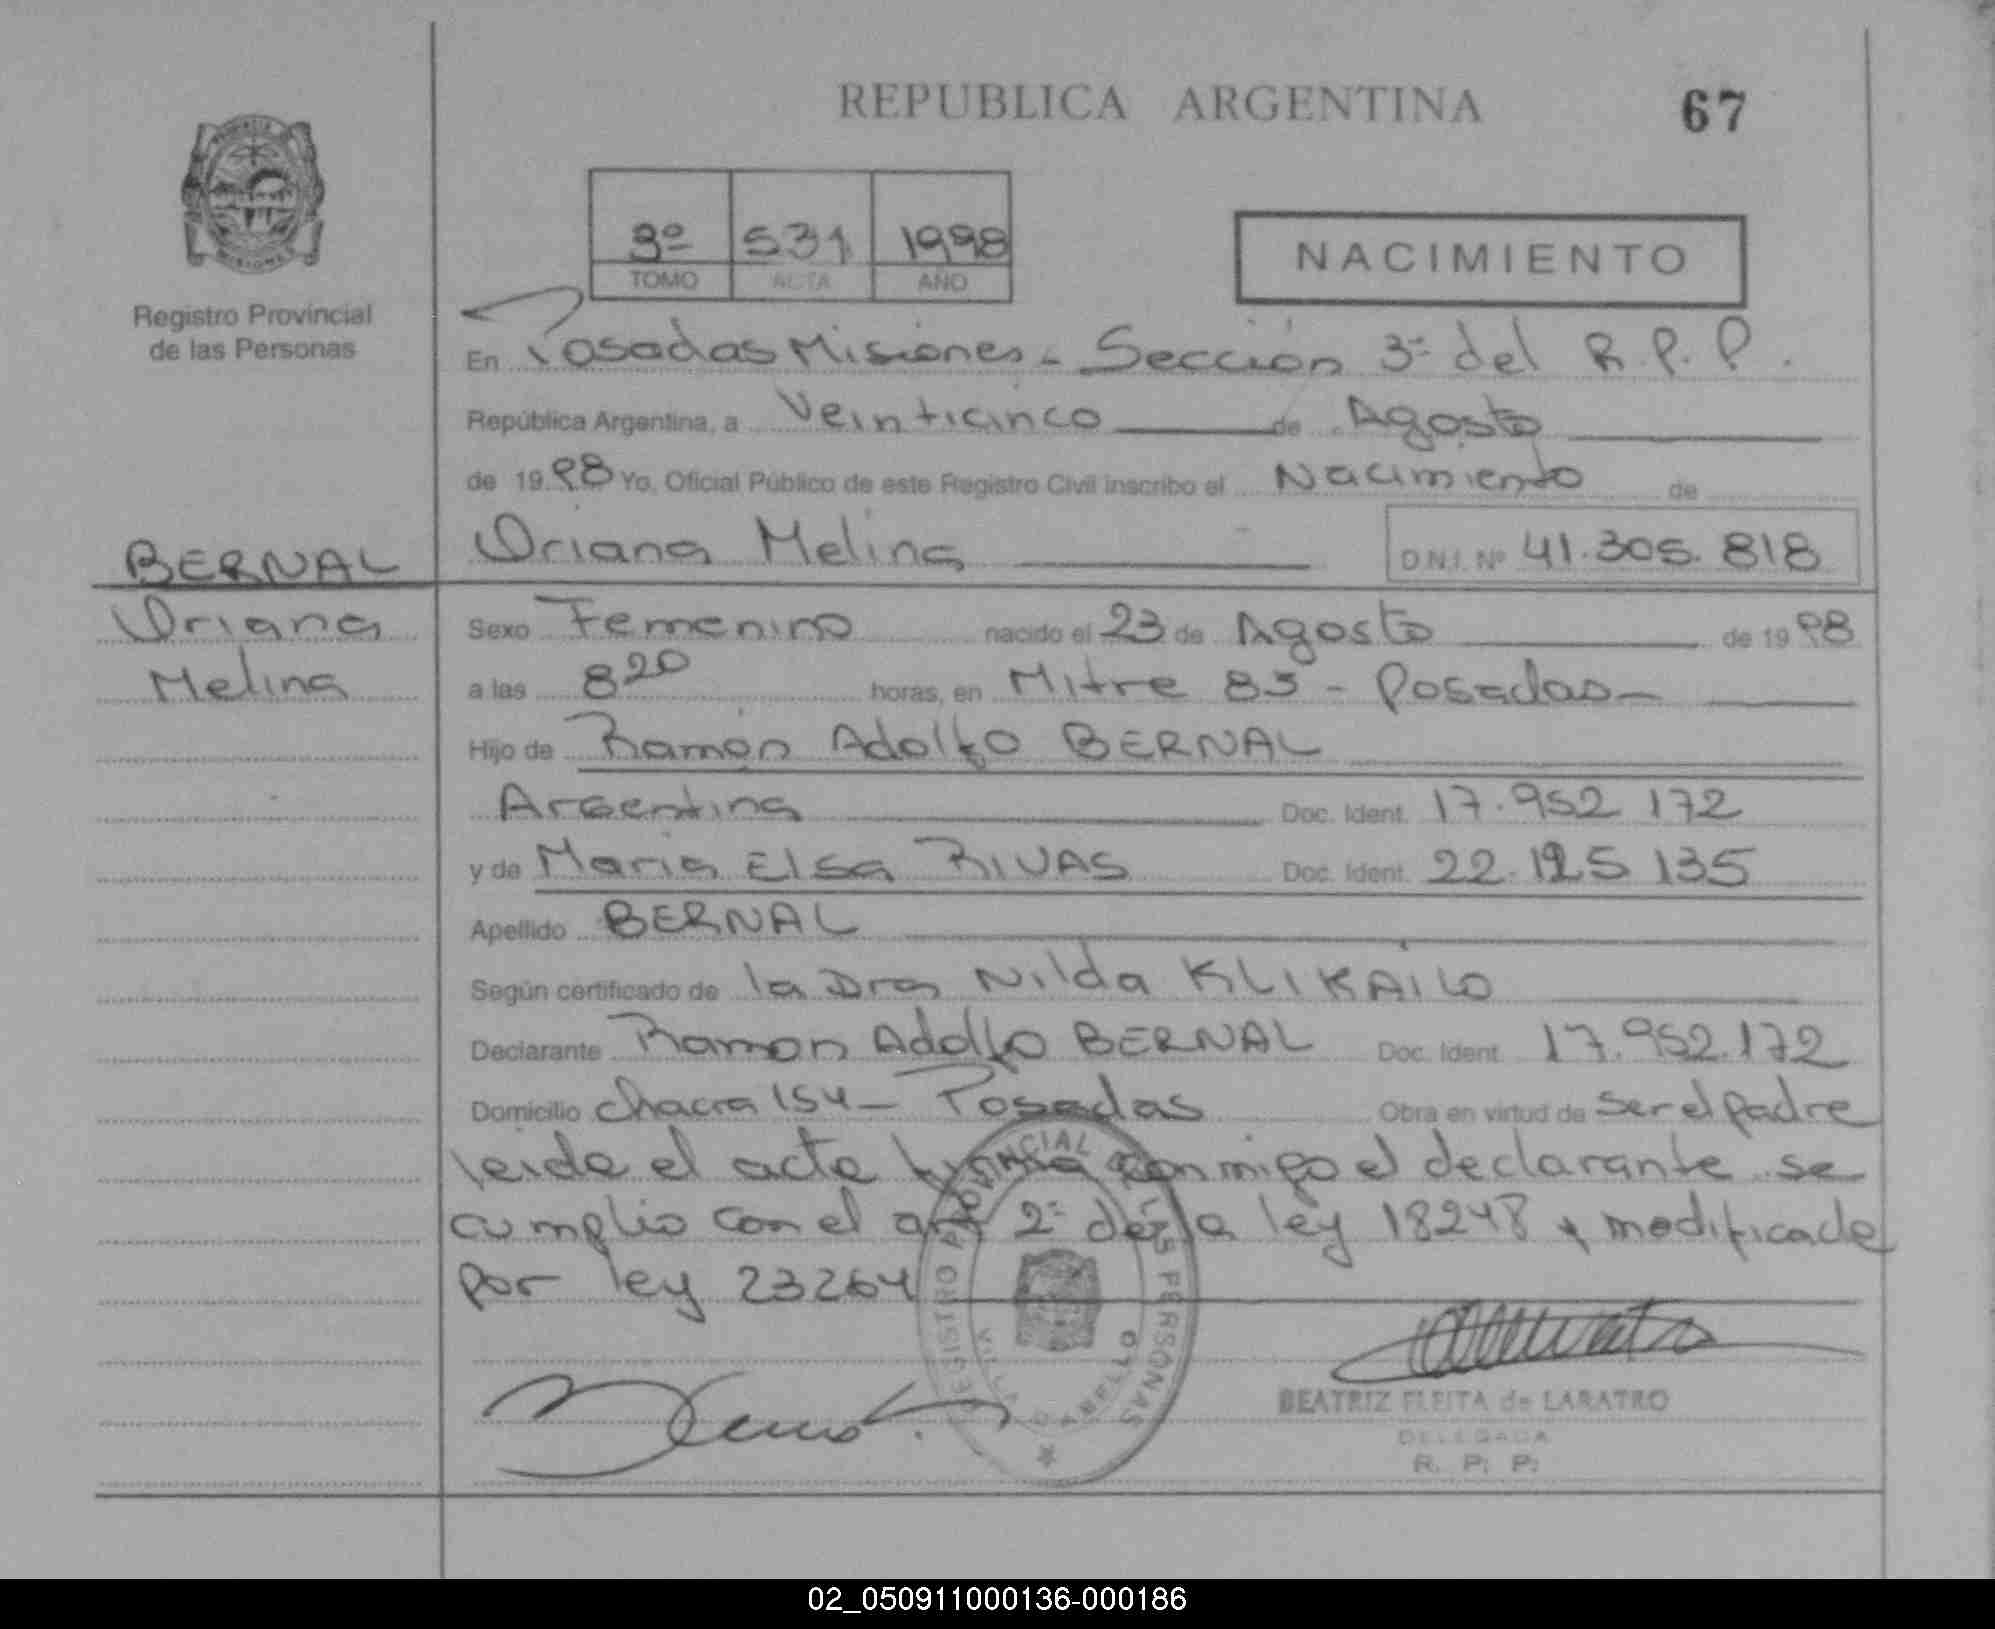 REPUBLICA ARGENTINA 67
Registro Provincial
de las Personas
3º 531 1998
TOMO ACTA AÑO
NACIMIENTO
En Posadas Misiones - Sección 3ª del R.P.P.
República Argentina, a Veinticinco de Agosto
de 1998 Yo, Oficial Público de este Registro Civil inscribo el Nacimiento de
BERNAL Oriana Melina D.N.I. Nº 41.305.818
Oriana Sexo Femenino nacido el 23 de Agosto de 1998
Melina a las 8 20 horas, en Mitre 83 - Posadas -
Hijo de Ramón Adolfo BERNAL
Argentina Doc. Ident. 17.952 172
y de Maria Elsa RIVAS Doc. Ident. 22.125 135
Apellido BERNAL
Según certificado de la Dra Nilda KLIKAILO
Declarante Ramon Adolfo BERNAL Doc. Ident. 17.952.172
Domicilio chacra 154 - Posadas Obra en virtud de ser el padre
leida el acta firma conmigo el declarante se
cumplio con el art 2º de la ley 18248 y modificada
por ley 23264
REGISTRO PROVINCIAL DE LAS PERSONAS
VILLA CABELLO
BEATRIZ FLEITA de LARATRO
DELEGADA
R. P. P.
02_050911000136-000186